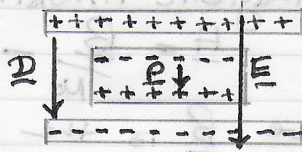 + + + + + + + + + + +
- - - - - -
D P E
+ + + + + +
- - - - - - - - - - -